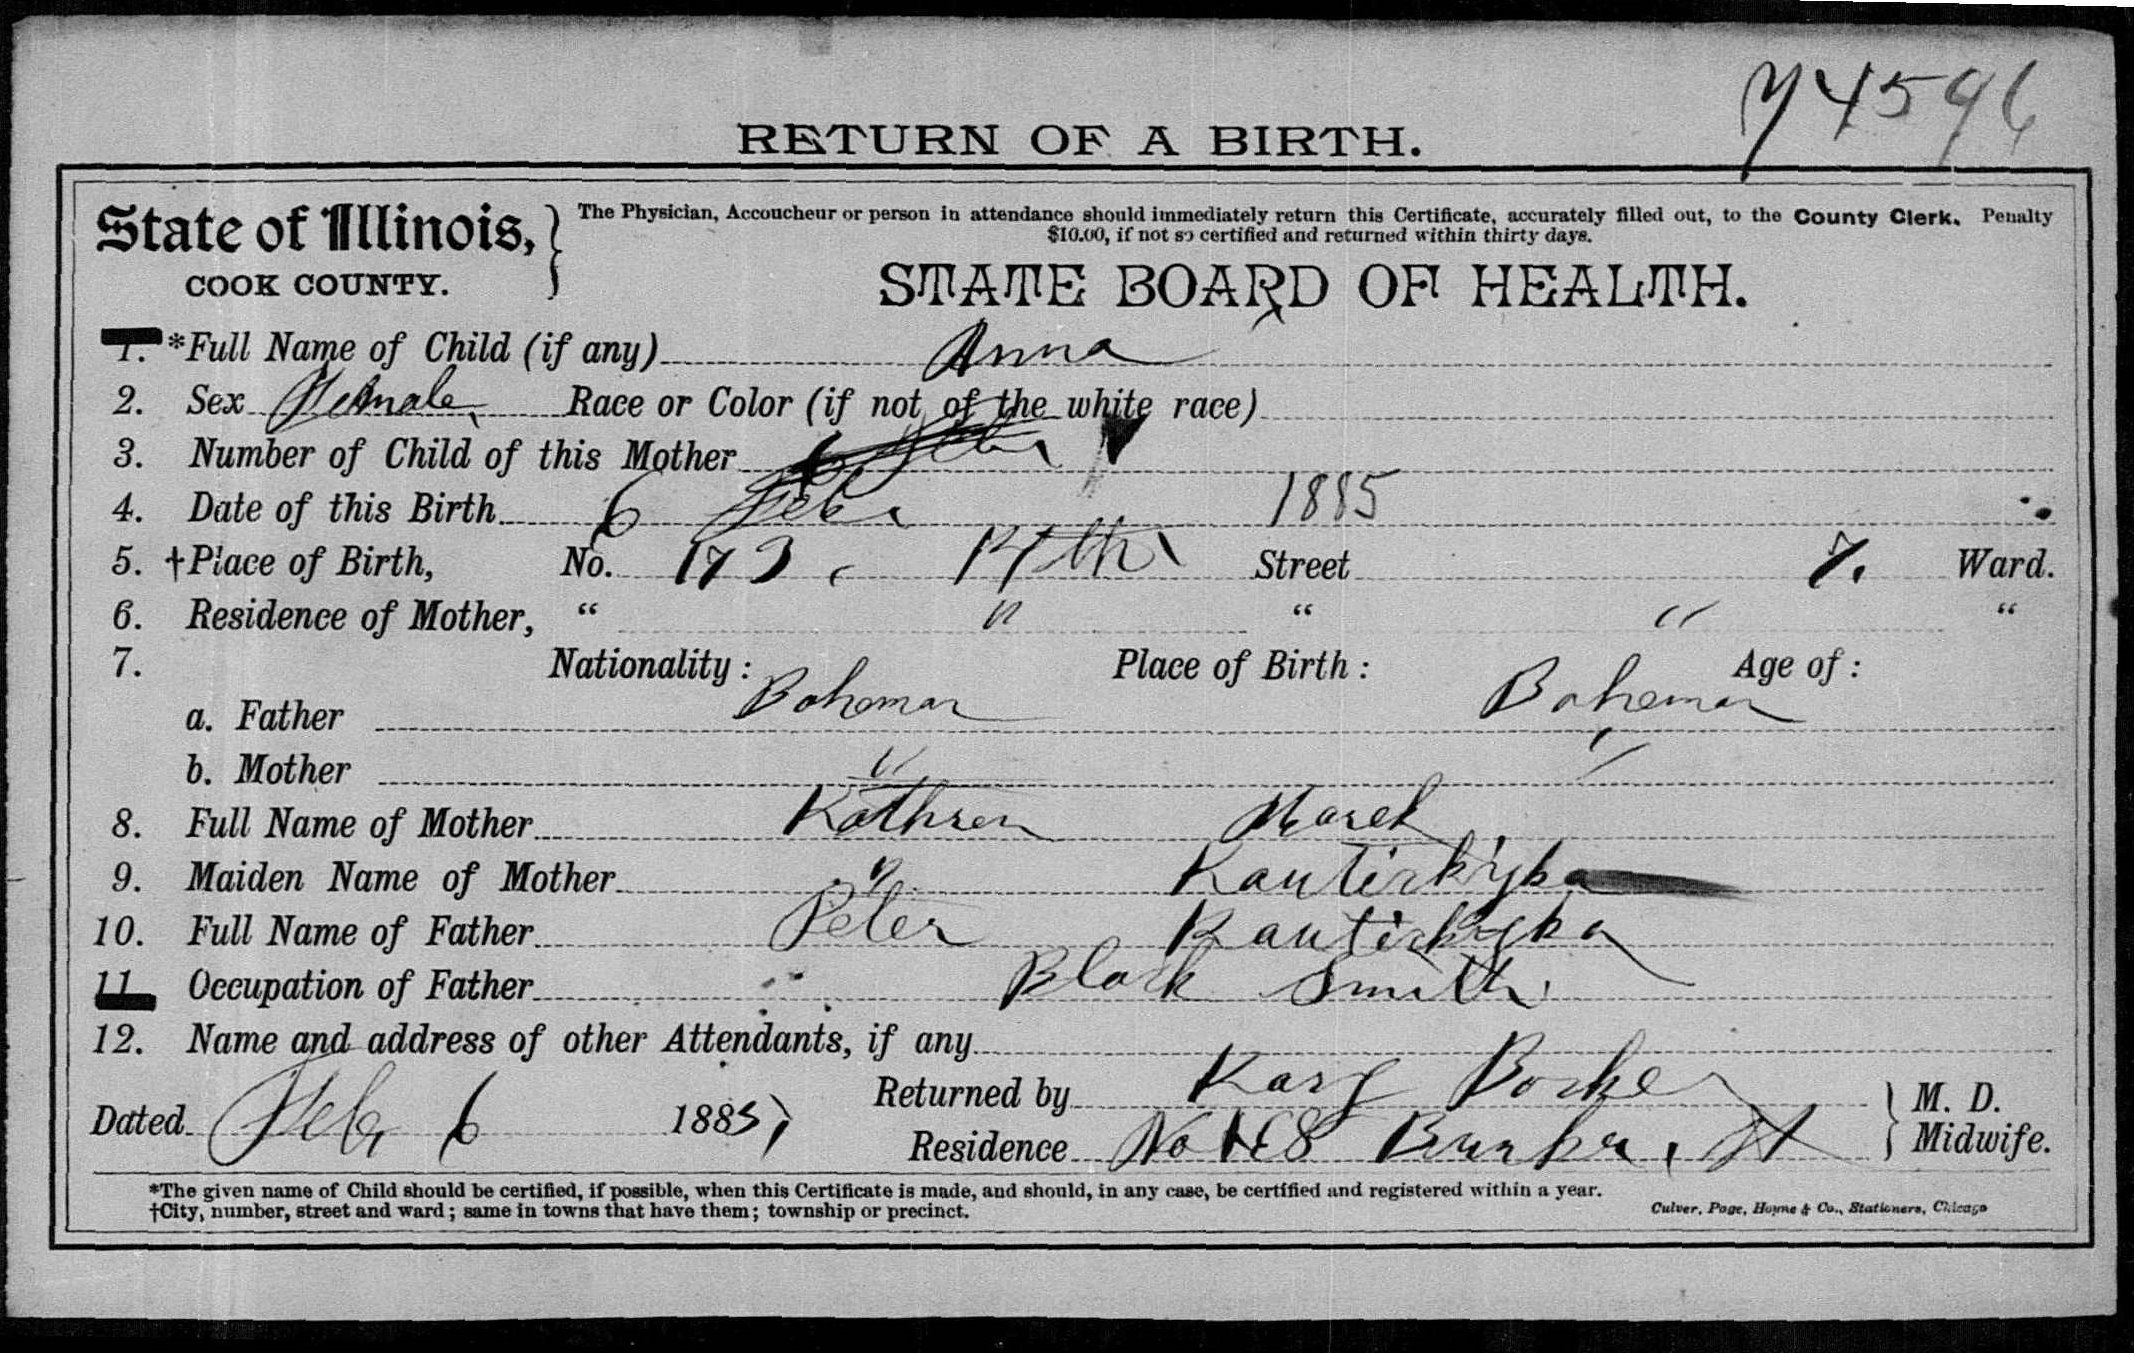 74596
RETURN OF A BIRTH.
State of Illinois,
COOK COUNTY.
The Physician, Accoucheur or person in attendance should immediately return this Certificate, accurately filled out, to the County Clerk. Penalty
$10.00, if not so certified and returned within thirty days.
STATE BOARD OF HEALTH.
1. *Full Name of Child (if any) Anna
2. Sex Female, Race or Color (if not of the white race)
3. Number of Child of this Mother 6 Feb.
4. Date of this Birth 6 Feb. 1885
5. †Place of Birth, No. 173, 14th Street 7. Ward.
6. Residence of Mother, " " " " "
7. Nationality: Place of Birth: Age of:
a. Father Boheman Boheman
b. Mother " "
8. Full Name of Mother Kathren Marek
9. Maiden Name of Mother "
10. Full Name of Father Peter
11. Occupation of Father Black Smith
12. Name and address of other Attendants, if any
Dated Feb, 6 1885, Returned by M. D.
Residence No Bunker, St Midwife.
*The given name of Child should be certified, if possible, when this Certificate is made, and should, in any case, be certified and registered within a year.
†City, number, street and ward; same in towns that have them; township or precinct.
Culver, Page, Hoyne & Co., Stationers, Chicago